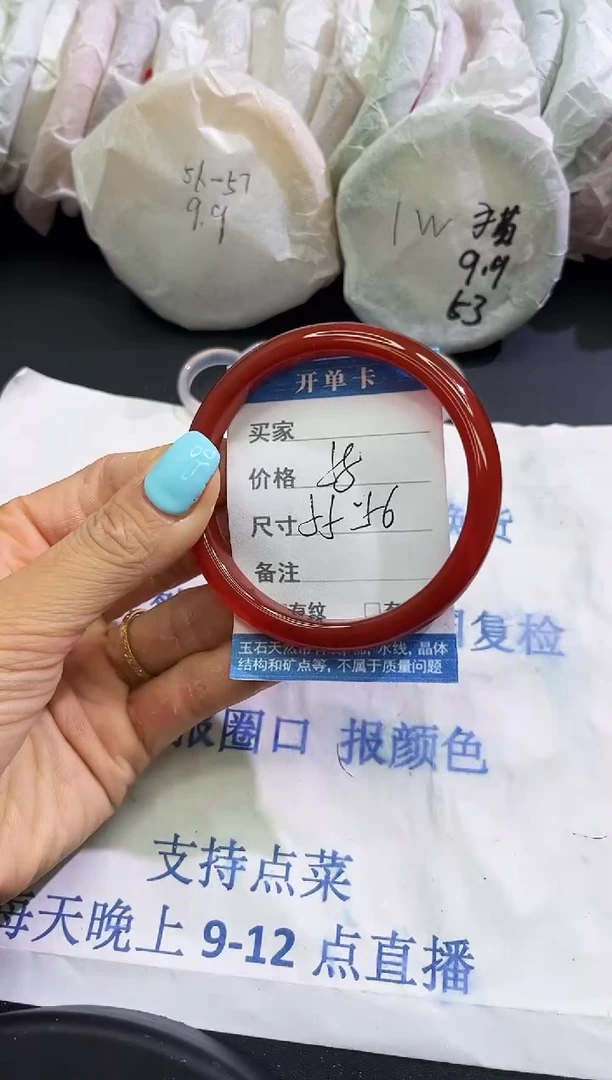 51-57
9.9
1W
9.9
53
开单卡
买家
价格 18
尺寸 55-56
备注
有纹 □有
玉石天然带有, 水线, 晶体
结构和矿点等, 不属于质量问题
复检
报圈口 报颜色
支持点菜
每天晚上 9-12 点直播